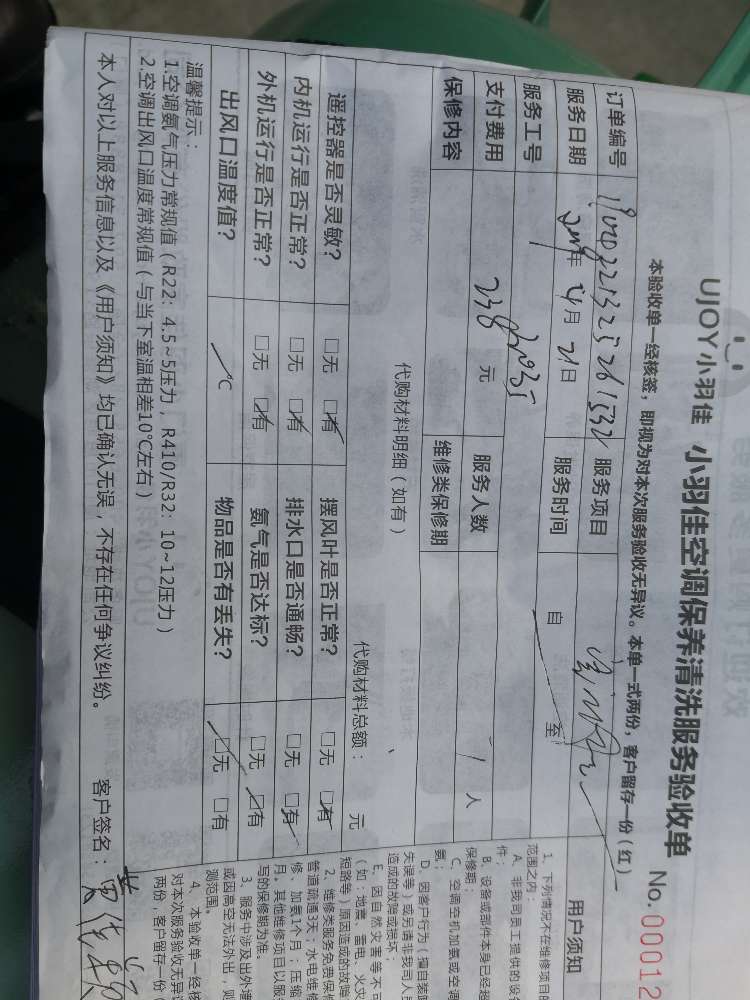 UJOY小羽佳 小羽佳空调保养清洗服务验收单 No. 00012
本验收单一经核签，即视为对本次服务验收无异议。本单一式两份，客户留存一份（红）
订单编号 服务项目
服务日期 2019年 4月 21日 服务时间 自 至
服务工号
支付费用 238 元 服务人数 1 人
保修内容 维修类保修期
代购材料明细（如有）
代购材料总额： 元
遥控器是否灵敏？ □无 □有 摆风叶是否正常？ □无 □有
内机运行是否正常？ □无 □有 排水口是否通畅？ □无 □有
外机运行是否正常？ □无 □有 氨气是否达标？ □无 □有
出风口温度值？ ℃ 物品是否有丢失？ □无 □有
温馨提示：
1.空调氨气压力常规值（R22：4.5~5压力，R410/R32：10~12压力）
2.空调出风口温度常规值（与当下室温相差10℃左右）
本人对以上服务信息以及《用户须知》均已确认无误，不存在任何争议纠纷。 客户签名：
用户须知
1、下列情况不在维修项目的
范围之内：
A、非我司员工提供的设备
件；
B、设备或部件本身已经超
保修期；
C、空调充机加氨或空调
氨；
D、因客户行为（擅自装
失误等）或另请非我司人员
造成的故障或损坏；
E、因自然灾害等不可
（如：地震、雷电、火灾
短路等）原因造成的故障
2、维修类服务免费保修
管道疏通3天；水电维修
修，加氨1个月；压缩
月。其他维修项目以服
写的保修期为准。
3、服务中涉及出外速
或因高空无法外出，则
测范围。
4、本验收单一经核
对本次服务验收无异议
两份，客户留存一份（